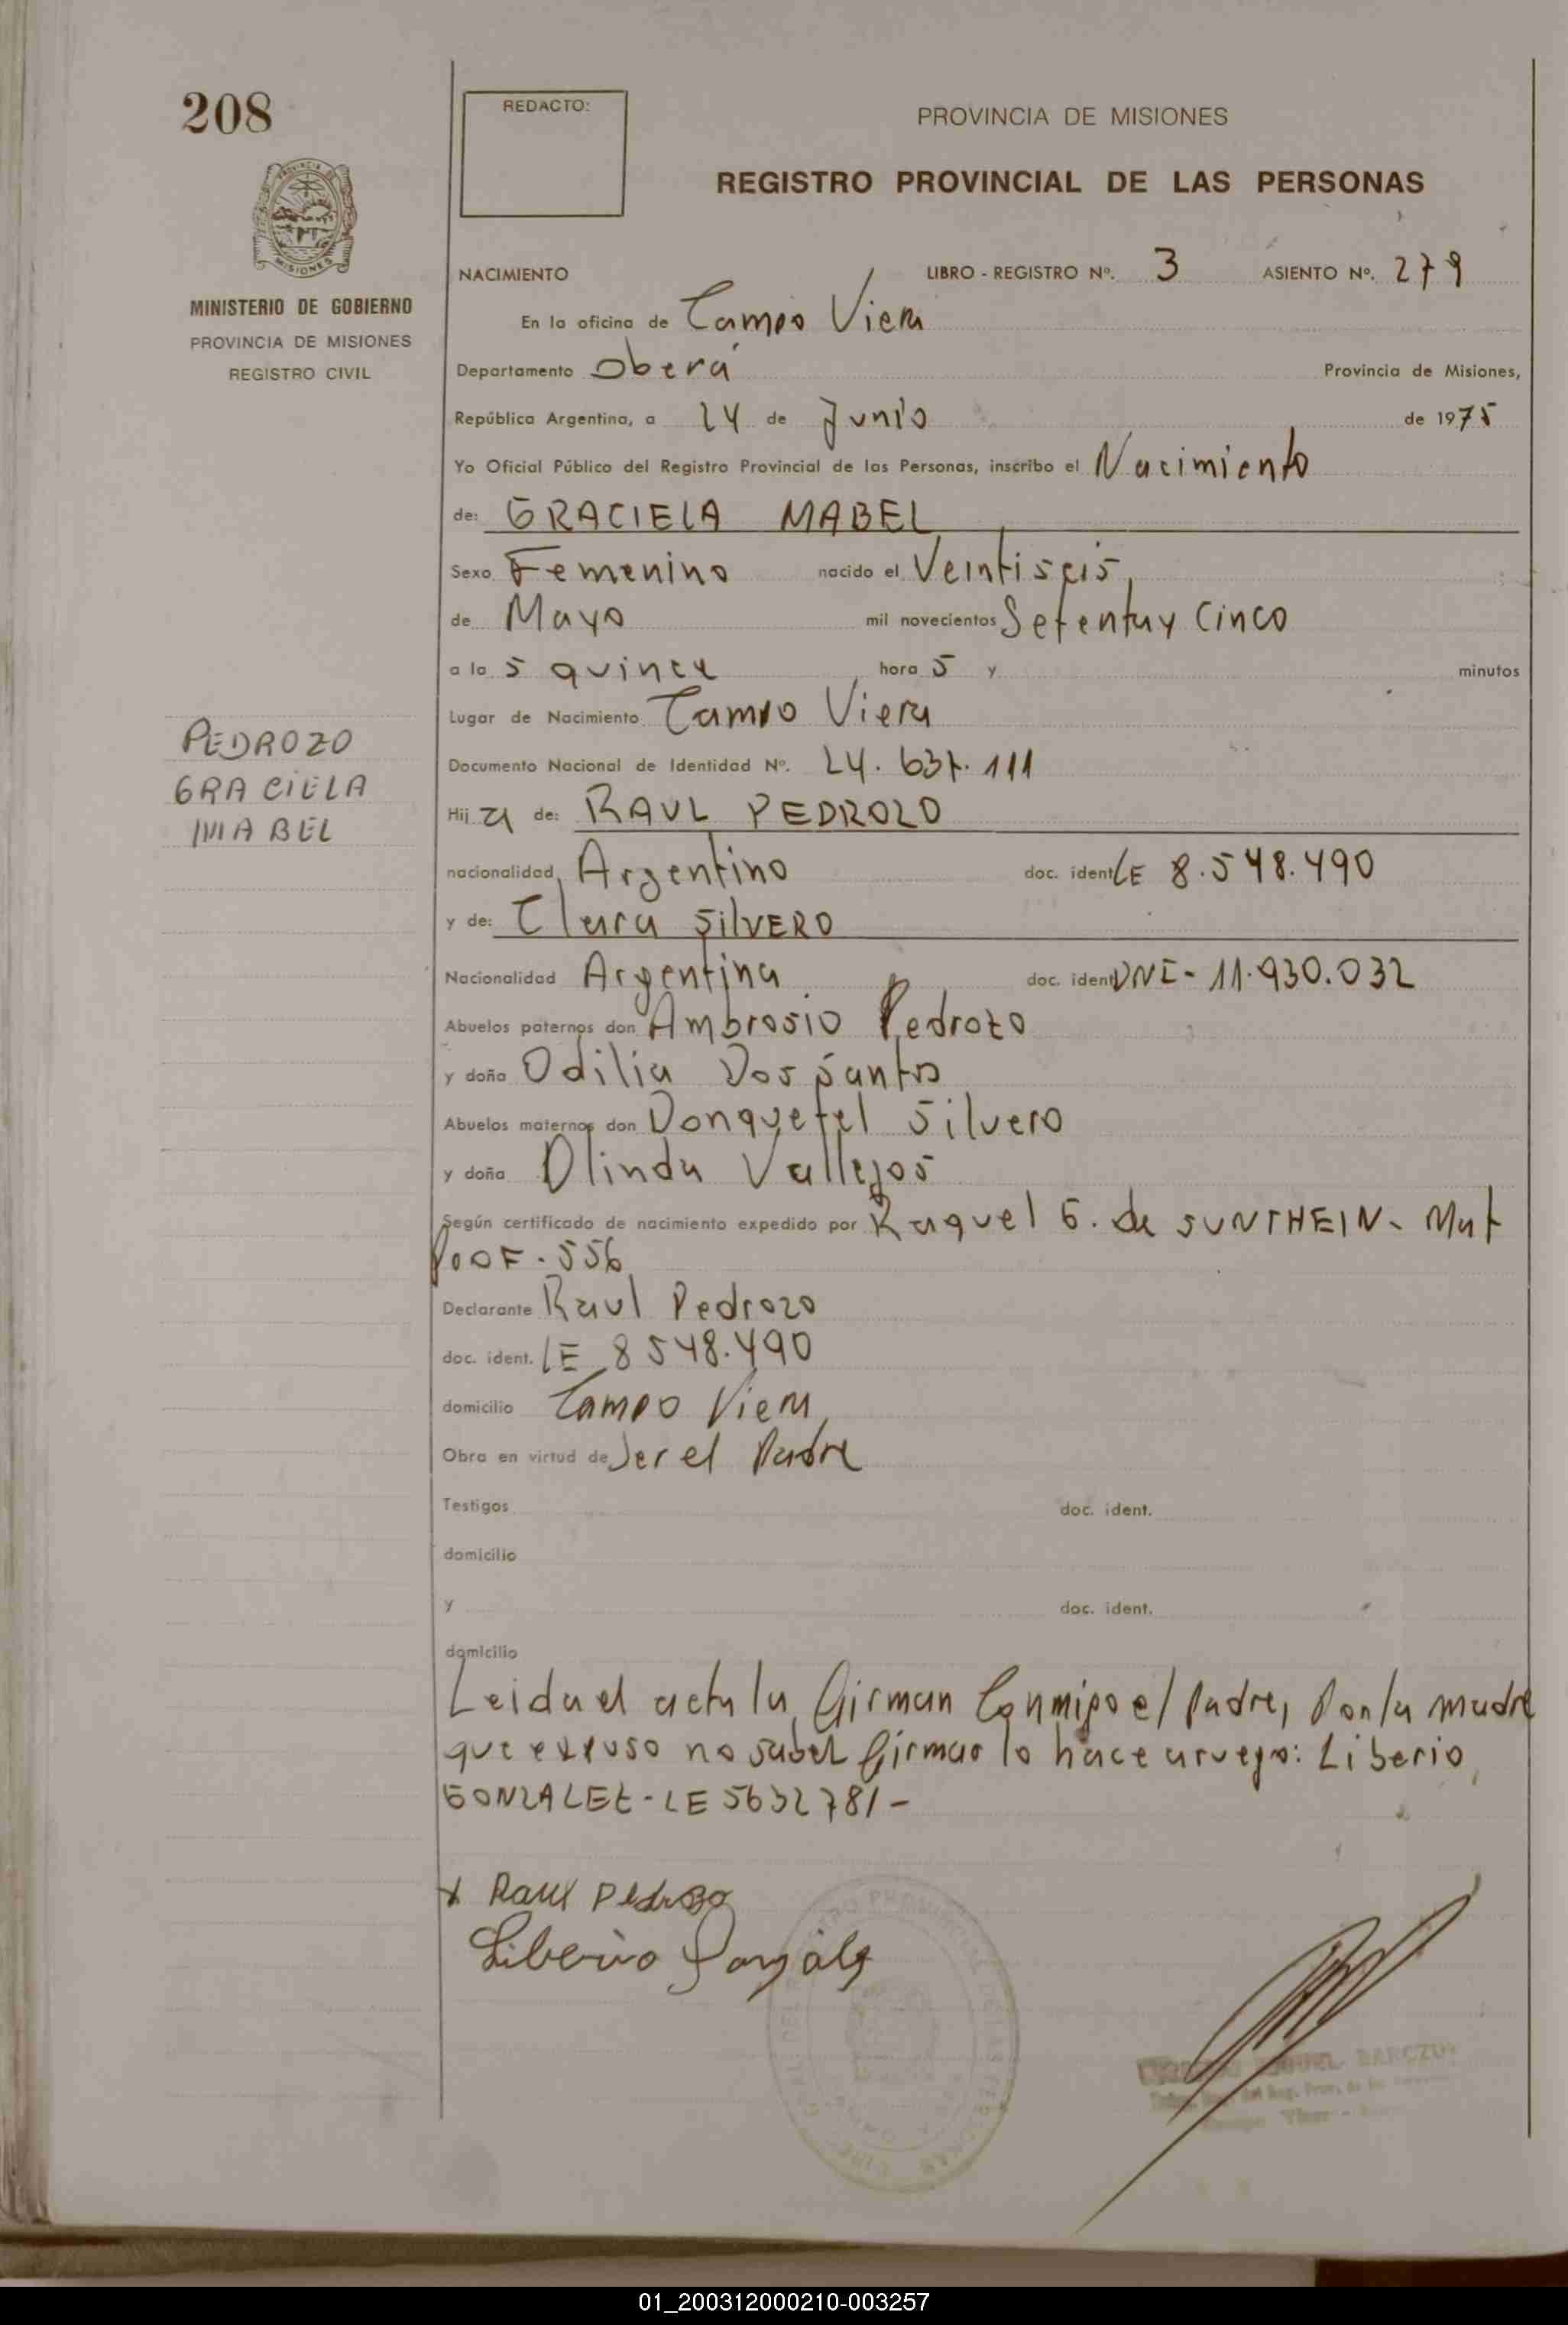 208
REDACTO:
PROVINCIA DE MISIONES
REGISTRO PROVINCIAL DE LAS PERSONAS
MISIONES
MINISTERIO DE GOBIERNO
PROVINCIA DE MISIONES
REGISTRO CIVIL
NACIMIENTO LIBRO - REGISTRO Nº. 3 ASIENTO Nº. 279
En la oficina de Campo Viera
Departamento Oberá Provincia de Misiones,
República Argentina, a 24 de Junio de 1975
Yo Oficial Público del Registro Provincial de las Personas, inscribo el Nacimiento
de: GRACIELA MABEL
Sexo Femenino nacido el Veintiseis
de Mayo mil novecientos Setenta y Cinco
a la s quince hora s y minutos
Lugar de Nacimiento Campo Viera
Documento Nacional de Identidad Nº. 24.637.111
PEDROZO
GRACIELA
MABEL
Hij a de: RAUL PEDROZO
nacionalidad Argentino doc. ident. LE 8.548.490
y de: Clara SilVERO
Nacionalidad Argentina doc. ident. DNI - 11.930.032
Abuelos paternos don Ambrosio Pedrozo
y doña Odilia Dos Santos
Abuelos maternos don Silvero
y doña Olinda Vallejos
Según certificado de nacimiento expedido por Raquel G. de SUNTHEIN - Mat
556
Declarante Raul Pedrozo
doc. ident. LE 8548.490
domicilio Campo Viera
Obra en virtud de Ser el Padre
Testigos doc. ident.
domicilio
y doc. ident.
domicilio
Leida el acta la firman Conmigo el Padre, Por la madre
que expuso no saber firmar lo hace a ruego: Liberio
GONZALEZ - LE 5632781 -
x Raul Pedrozo
Liberio Gonzalez
01_200312000210-003257